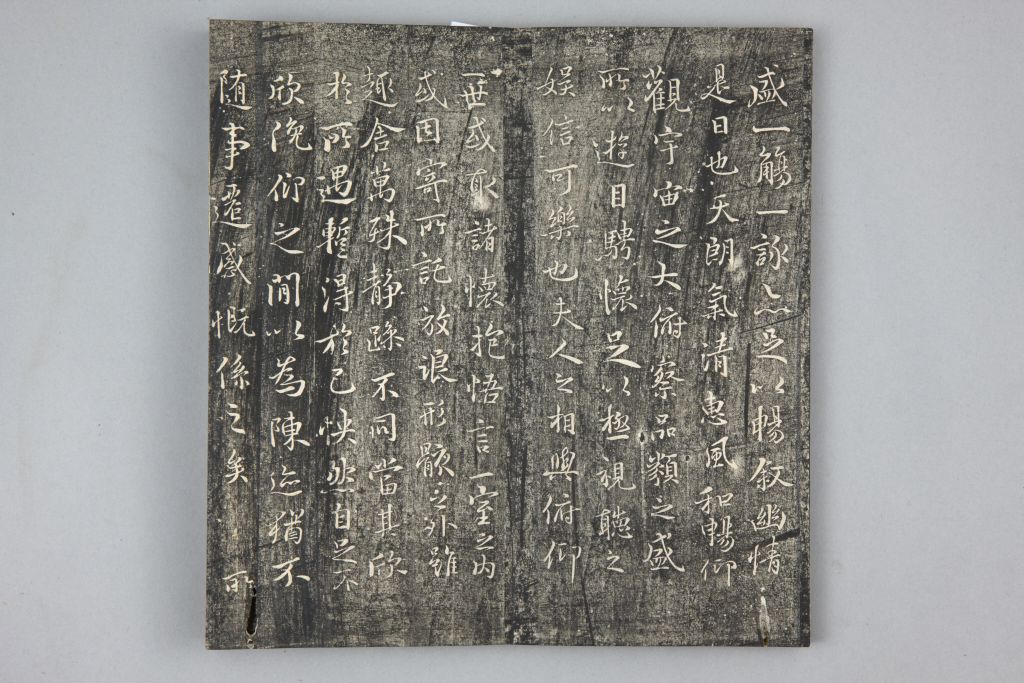 盛一觴一詠亦足以暢叙幽情
是日也天朗氣清惠風和暢仰
觀宇宙之大俯察品類之盛
所以遊目騁懷足以極視聽之
娛信可樂也夫人之相與俯仰
一世或取諸懷抱悟言一室之内
或因寄所託放浪形骸之外雖
趣舍萬殊静躁不同當其欣
於所遇蹔得於己怏然自足不
欣俛仰之間以為陳迹猶不
随事遷感慨係之矣 所